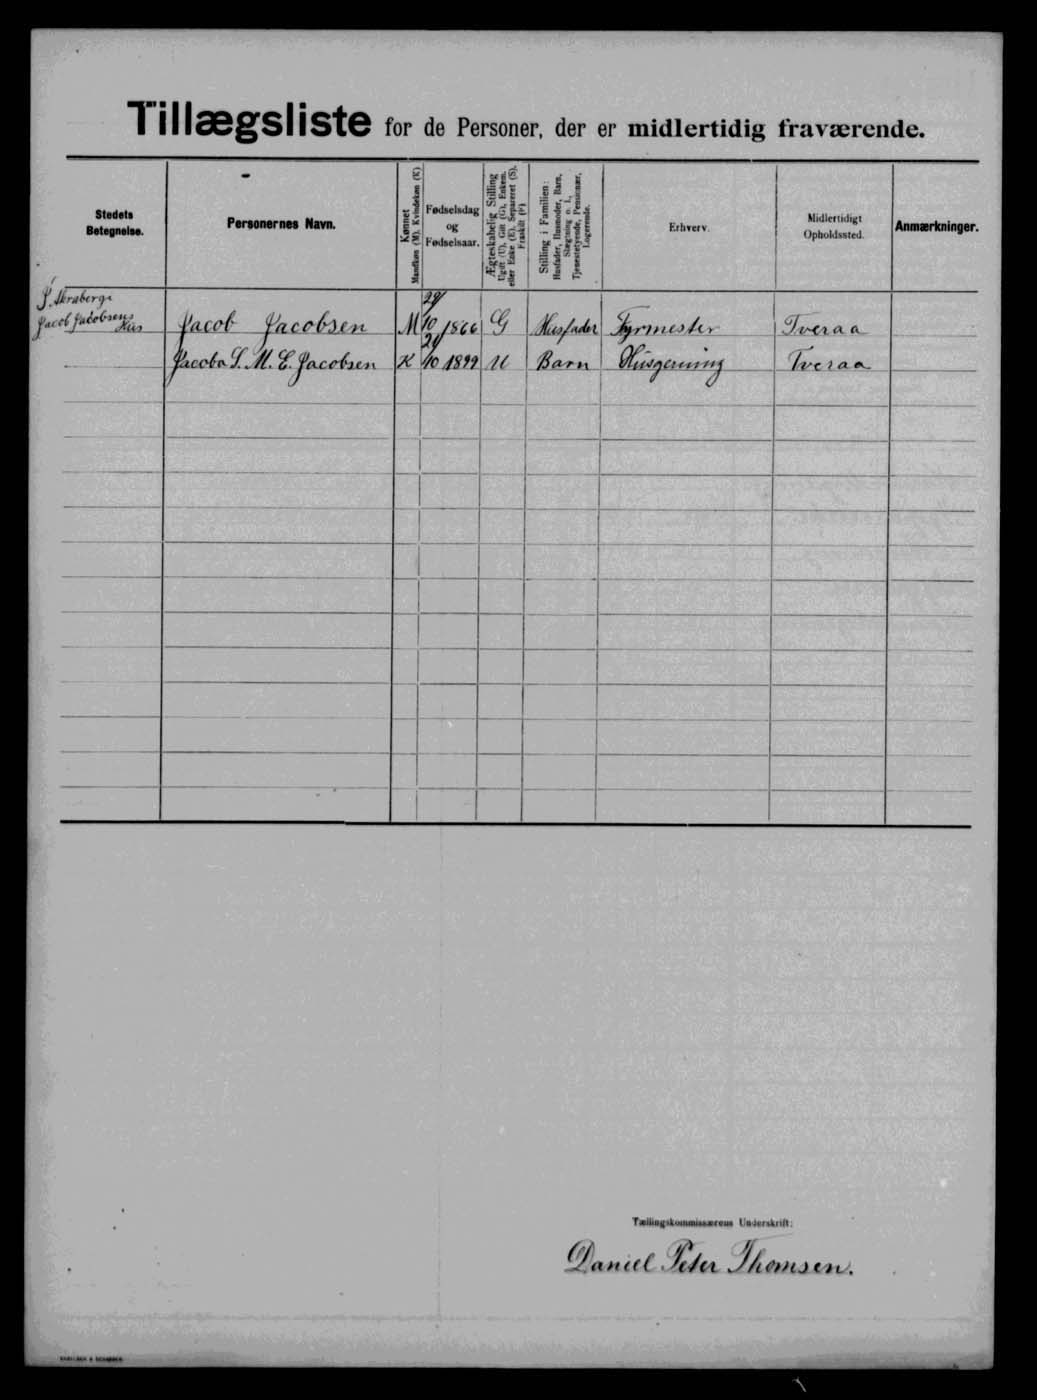 Tillægsliste for de Personer, der er midlertidig fraværende.
Stedets Betegnelse.
Personernes Navn.
Kønnet Mandkøn (M). Kvindekøn (K)
Fødselsdag og Fødselsaar.
Ægteskabelig Stilling Ugift (U), Gift (G), Enkem. eller Enke (E), Separeret (S), Fraskilt (F)
Stilling i Familien: Husfader, Husmoder, Barn, Slægtning o. l., Tjenestetyende, Pensionær, Logerende.
Erhverv.
Midlertidigt Opholdssted.
Anmærkninger.
Akraberge
Jacob Jacobsens Hus
Jacob Jacobsen M 29/10 1866 G Husfader Fyrmester Tveraa
Jacoba S. M. E. Jacobsen K /10 1899 U Barn Husgerning Tveraa
Tællingskommissærens Underskrift:
Daniel Peter Thomsen.